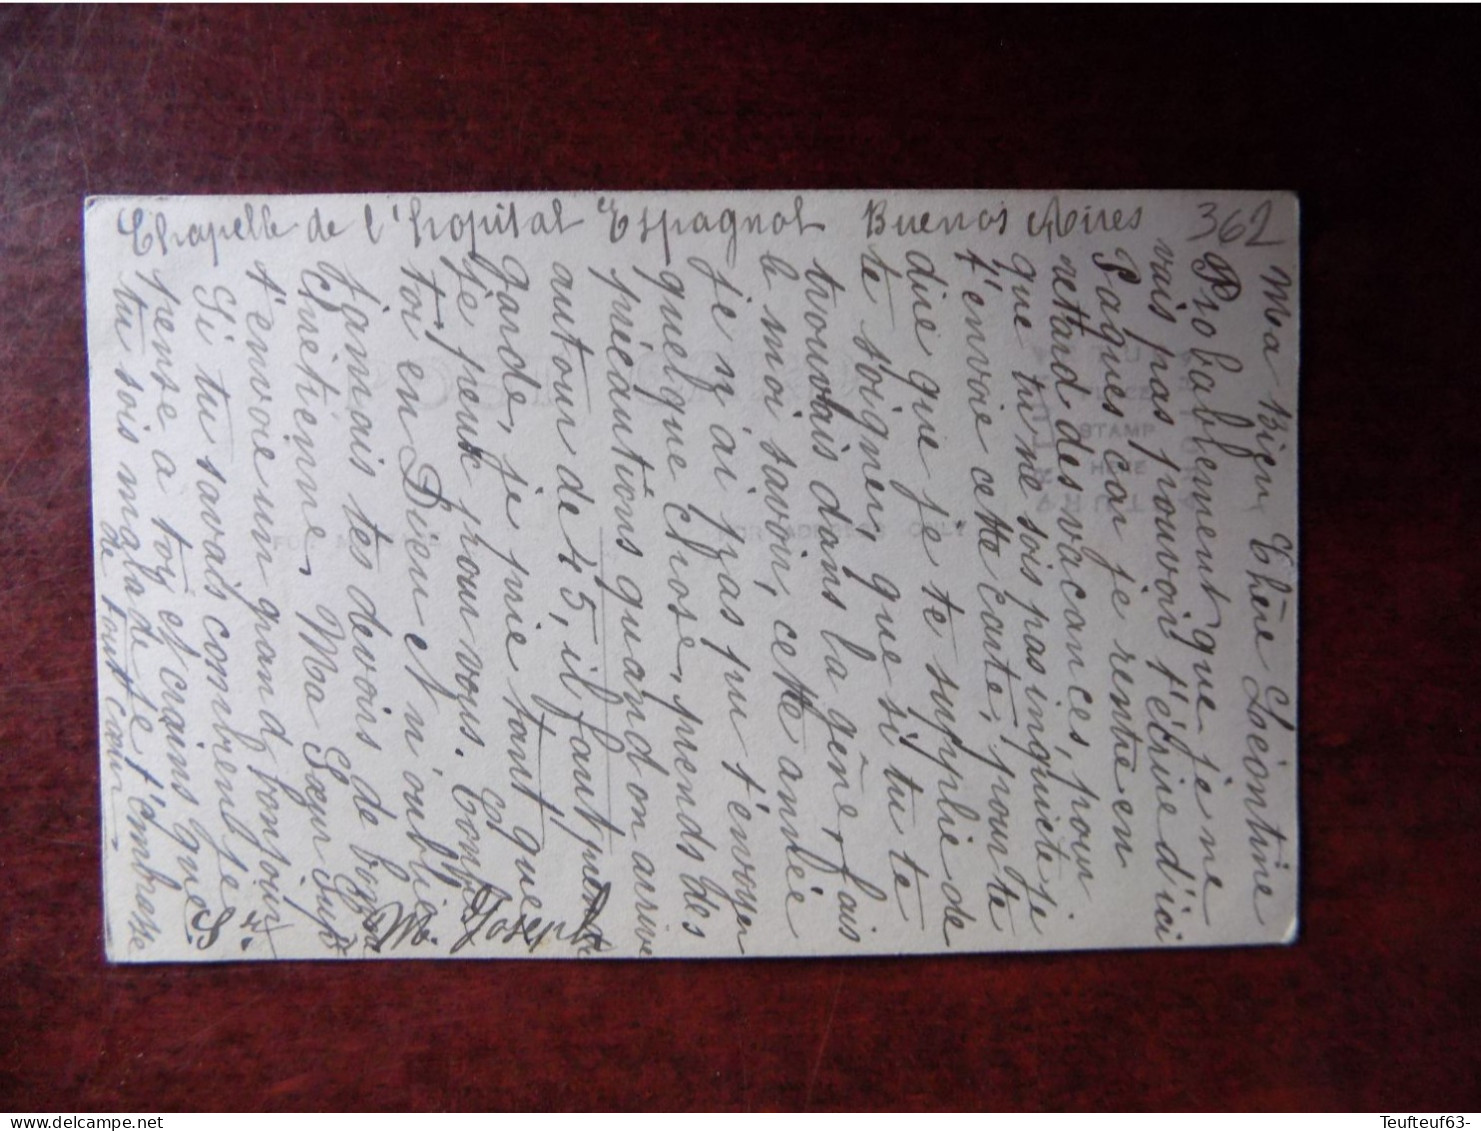 Chapelle de l'hopital Espagnol Buenos Aires
362
Ma Bien Chère Léontine
Probablement que je ne
vais pas pouvoir t'écrire d'ici
Pâques car je rentre en
rettard des vaccances, pour
que tu ne sois pas inquiete je
t'envoie cette carte, pour te
dire que je te supplie de
te soigner, que si tu te
trouvais dans la gêne, fais
le moi savoir, cette année
je n'ai pas pu t'envoyer
quelque chose, prends des
précautions quand on arrive
autour de 45, il faut prendre
garde, je prie tant que
je peux pour vous. Confie
toi en Dieu et n'oublie
jamais tes devoirs de bonne
Chrétienne, Ma Sœur Supre
t'envoie un grand bonjour
Si tu savais combien je
pense a toi et crains que
tu sois malade Je t'embrasse
de tout cœur
Sr. M. Joseph
PLACE
STAMP
HERE
FOR ADDRESS ONLY
Teufteuf63-
www.delcampe.net